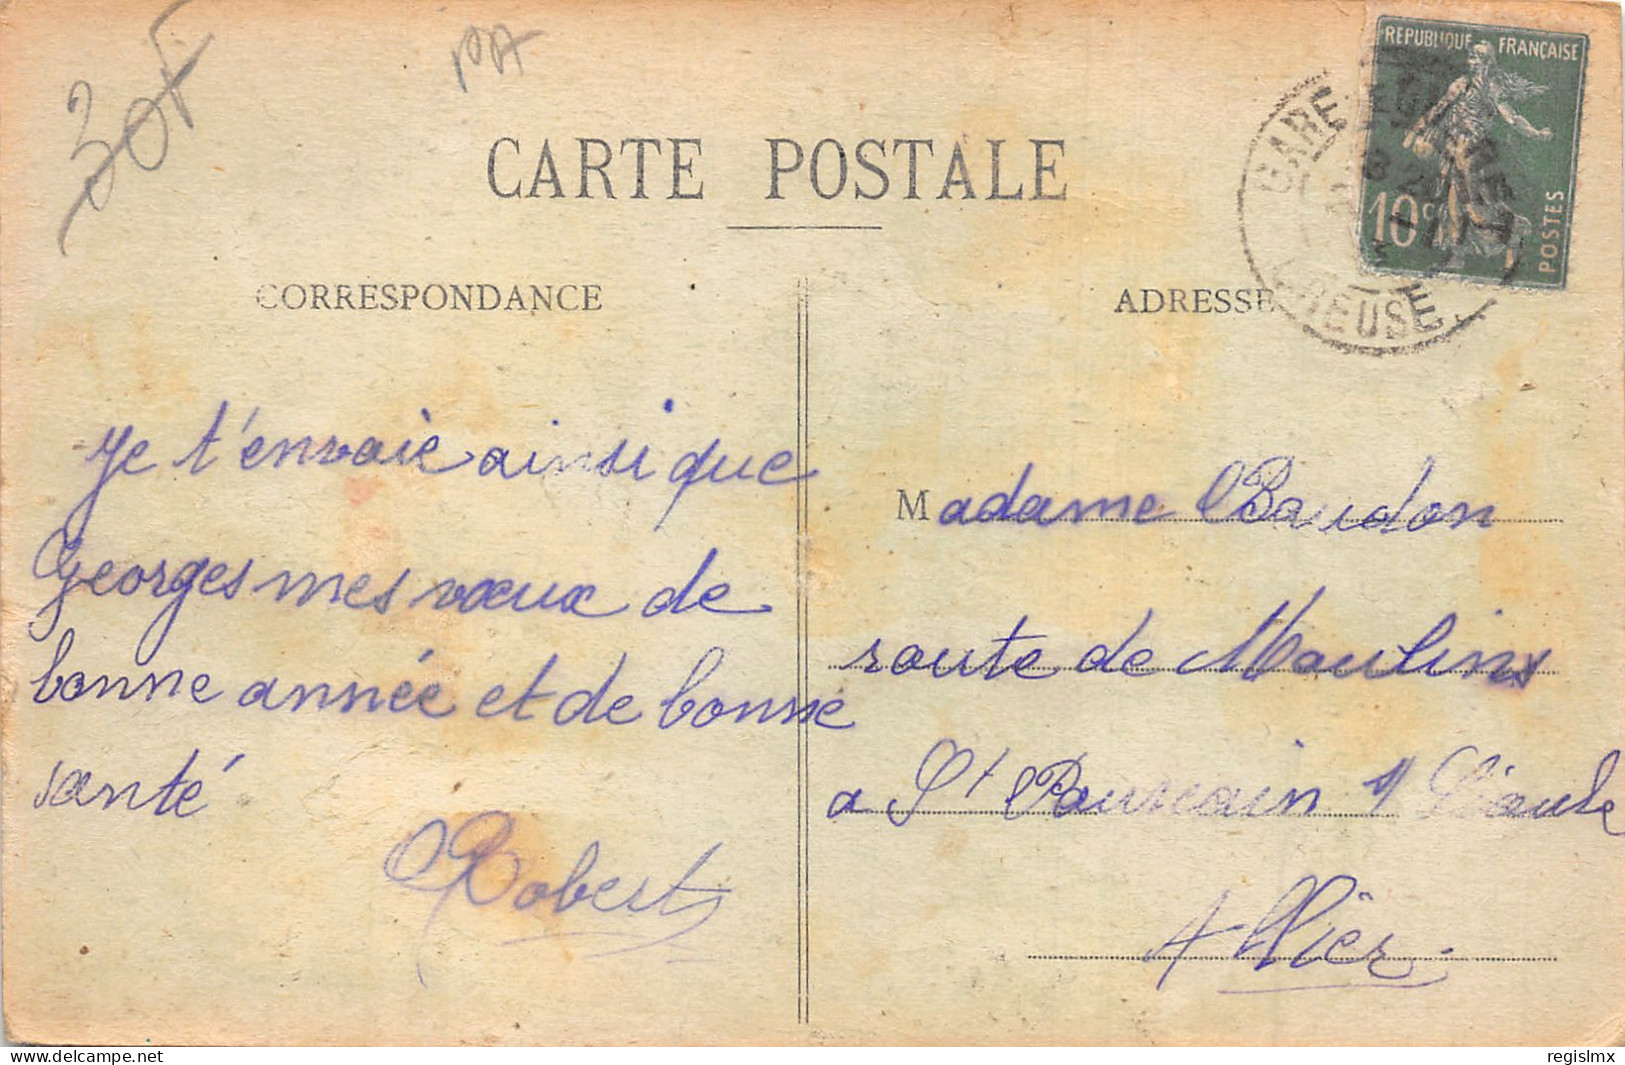 30F
PA
REPUBLIQUE FRANÇAISE
10c
POSTES
GARE
CREUSE
CARTE POSTALE
CORRESPONDANCE
ADRESSE
Je t'envoie ainsi que
Georges mes vœux de
bonne année et de bonne
santé
Robert
Madame Baudon
route de Moulins
a St Pourcain s/ Sioule
Allier.
www.delcampe.net
regislmx